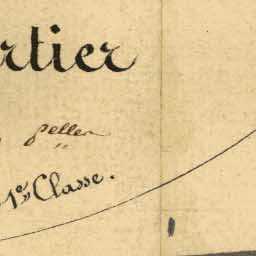 rtier
pellen
〃
1re Classe.